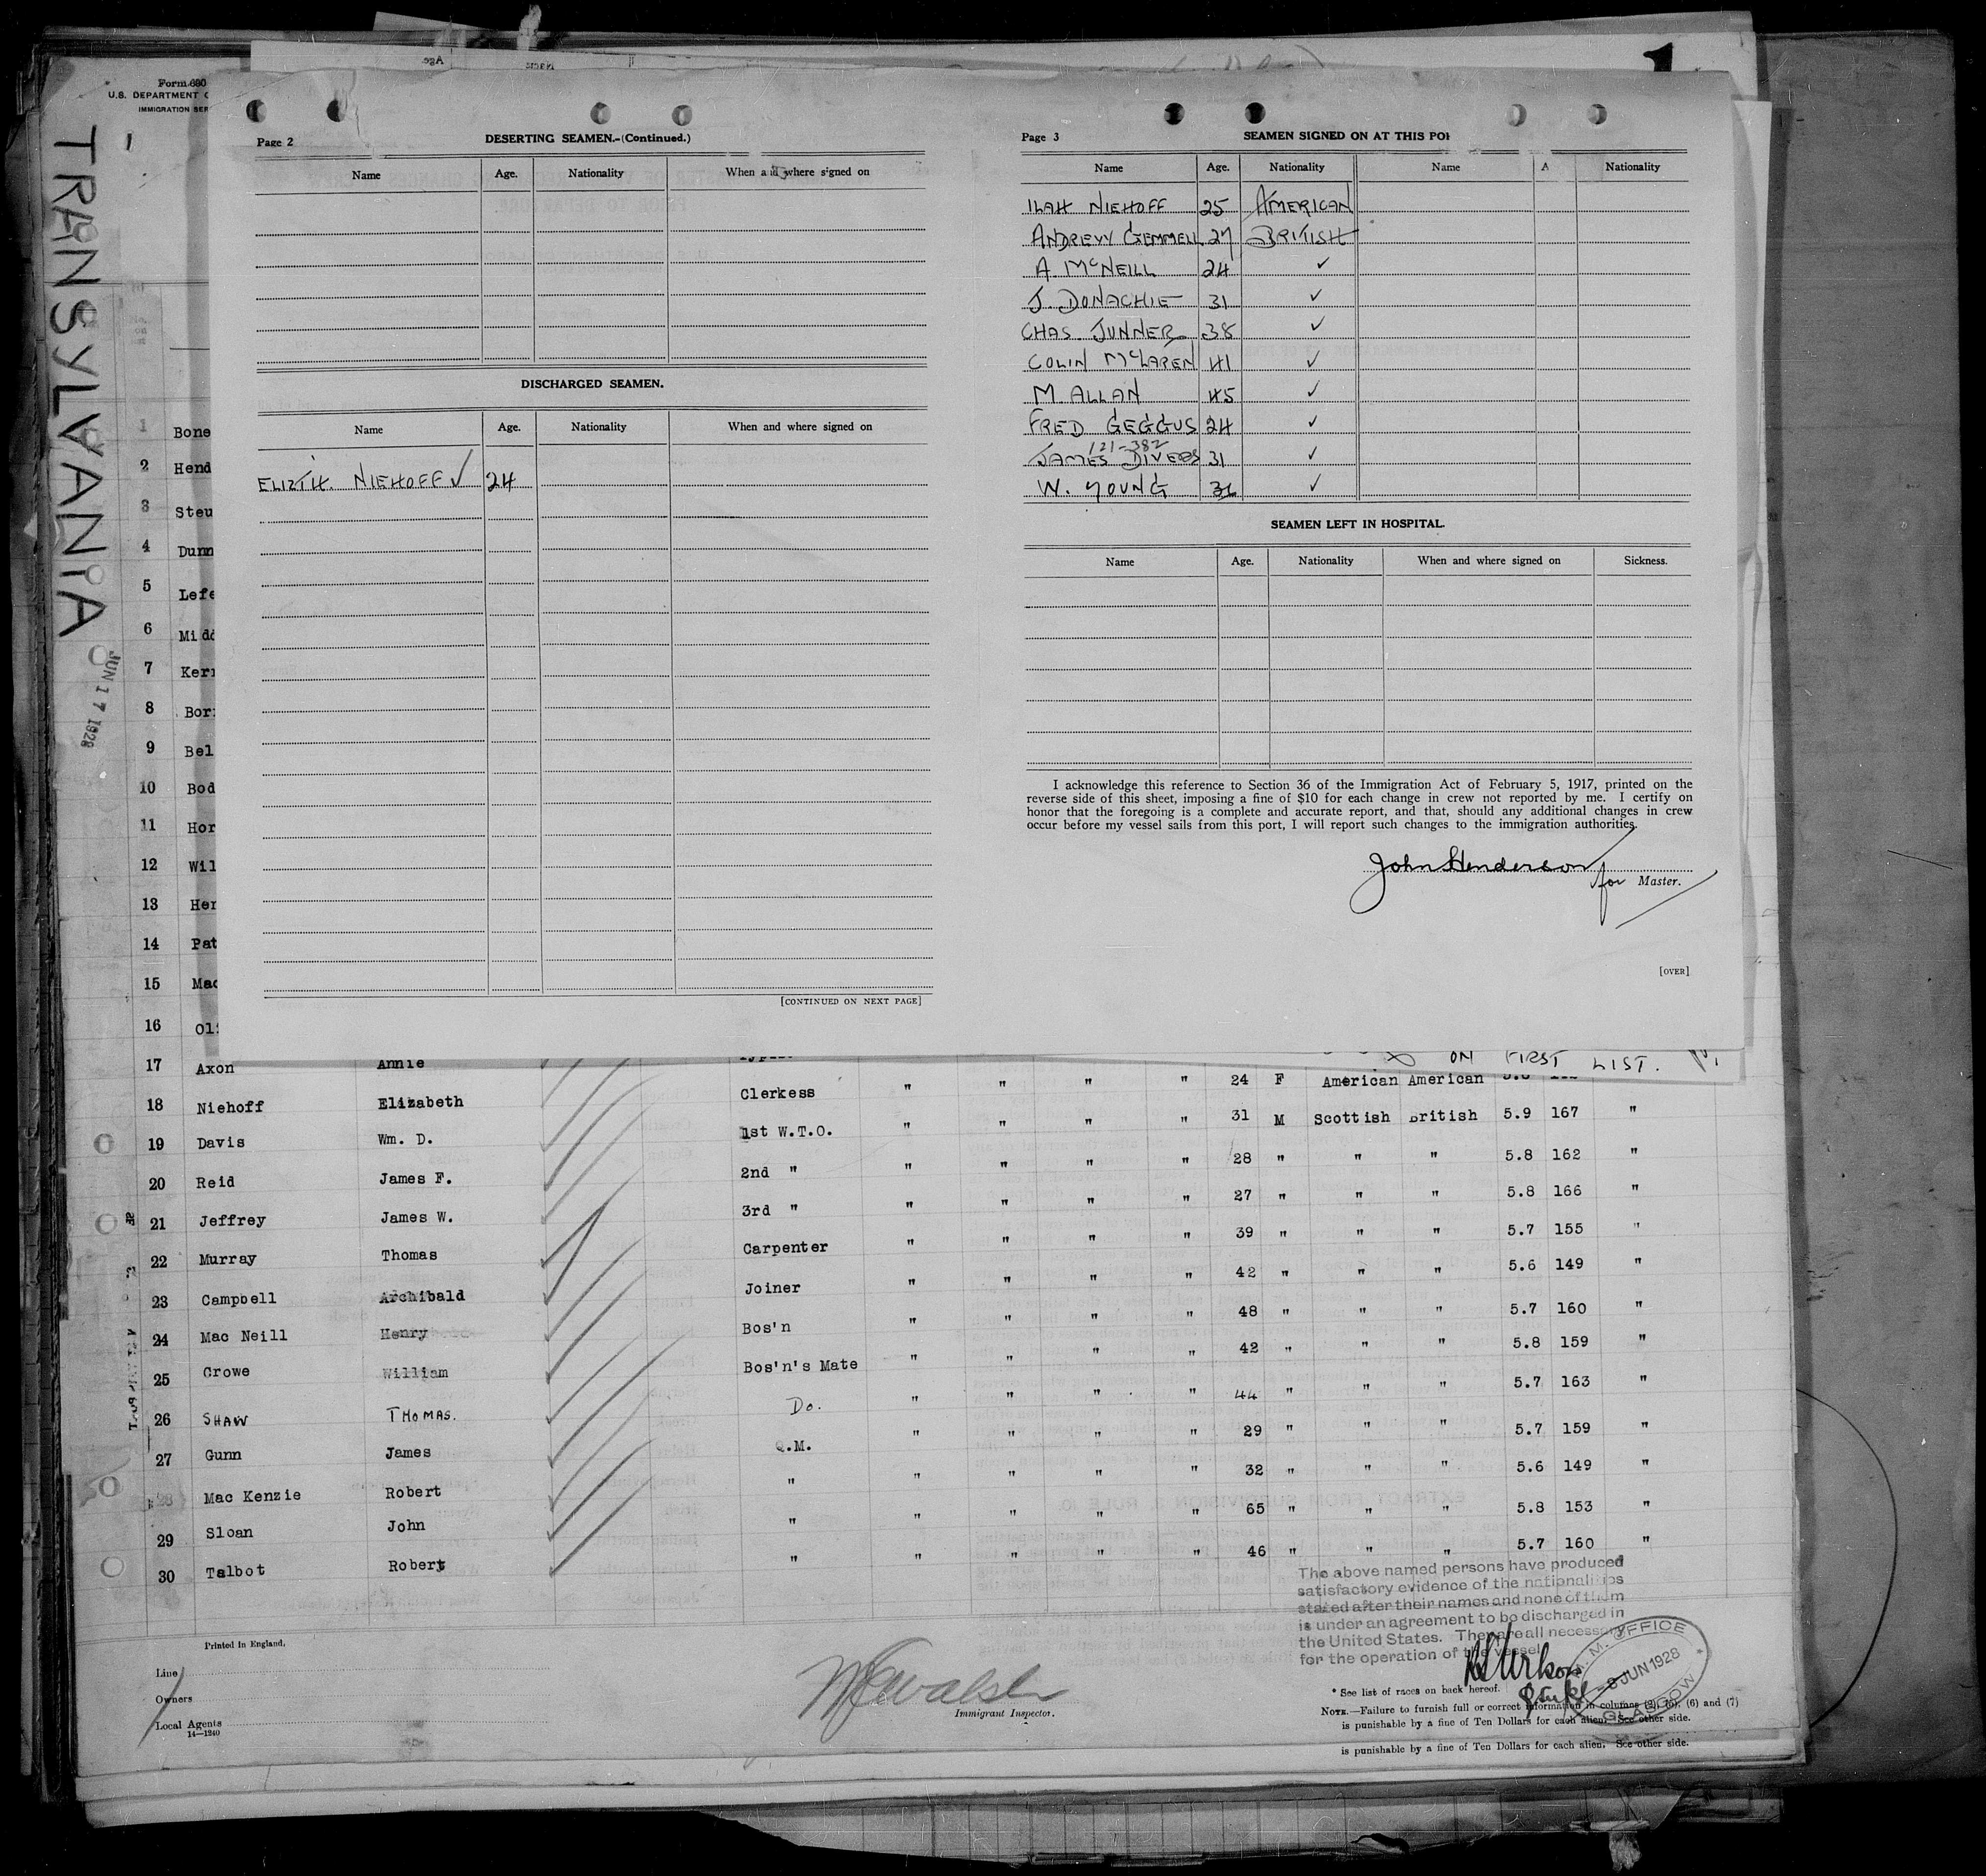 Form 680
U.S. DEPARTMENT
IMMIGRATION SER
TRANSYLVANIA
JUN 17 1928
Page 2
DESERTING SEAMEN.-(Continued.)
Name Age. Nationality When and where signed on
DISCHARGED SEAMEN.
Name Age. Nationality When and where signed on
ELIZTH. NIEHOFF ✓ 24
[CONTINUED ON NEXT PAGE]
Page 3
SEAMEN SIGNED ON AT THIS POR
Name Age. Nationality Name A Nationality
ILAH NIEHOFF 25 AMERICAN
ANDREW GEMMELL 27 BRITISH
A. McNEILL 24 ✓
J. DONACHIE 31 ✓
CHAS. JUNNER 38 ✓
COLIN McLAREN 41 ✓
M. ALLAN 45 ✓
FRED GEGGUS 24 ✓
121-382
JAMES DIVERS 31 ✓
W. YOUNG 36 ✓
SEAMEN LEFT IN HOSPITAL.
Name Age. Nationality When and where signed on Sickness.
I acknowledge this reference to Section 36 of the Immigration Act of February 5, 1917, printed on the
reverse side of this sheet, imposing a fine of $10 for each change in crew not reported by me. I certify on
honor that the foregoing is a complete and accurate report, and that, should any additional changes in crew
occur before my vessel sails from this port, I will report such changes to the immigration authorities.
John Henderson
for Master.
[OVER]
1 Bone
2 Hend
3 Steu
4 Dunn
5 Lefe
6 Midd
7 Kerr
8 Bor
9 Bel
10 Bod
11 Hor
12 Wil
13 Her
14 Pat
15 Mac
16 Oli
ON FIRST LIST.
17 Axon Annie
18 Niehoff Elizabeth Clerkess " " " " 24 F American American
19 Davis Wm. D. 1st W.T.O. " " " " 31 M Scottish British 5.9 167 "
20 Reid James F. 2nd " " " " " 28 " " " 5.8 162 "
21 Jeffrey James W. 3rd " " " " " 27 " " " 5.8 166 "
22 Murray Thomas Carpenter " " " " 39 " " " 5.7 155 "
23 Campbell Archibald Joiner " " " " 42 " " " 5.6 149 "
24 Mac Neill Henry Bos'n " " " " 48 " " " 5.7 160 "
25 Crowe William Bos'n's Mate " " " " 42 " " " 5.8 159 "
26 SHAW THOMAS. Do. " " " " 44 " " " 5.7 163 "
27 Gunn James Q.M. " " " " 29 " " " 5.7 159 "
28 Mac Kenzie Robert " " " " " 32 " " " 5.6 149 "
29 Sloan John " " " " " 65 " " " 5.8 153 "
30 Talbot Robert " " " " " 46 " " " 5.7 160 "
The above named persons have produced
satisfactory evidence of the nationalities
stated after their names and none of them
is under an agreement to be discharged in
the United States. They are all necessary
for the operation of the vessel
M. M. OFFICE
JUN 1928
GLASGOW
Printed in England.
Line
Owners
Local Agents
14—1240
Immigrant Inspector.
* See list of races on back hereof.
NOTE.—Failure to furnish full or correct information in columns (3), (5), (6) and (7)
is punishable by a fine of Ten Dollars for each alien. See other side.
is punishable by a fine of Ten Dollars for each alien. See other side.